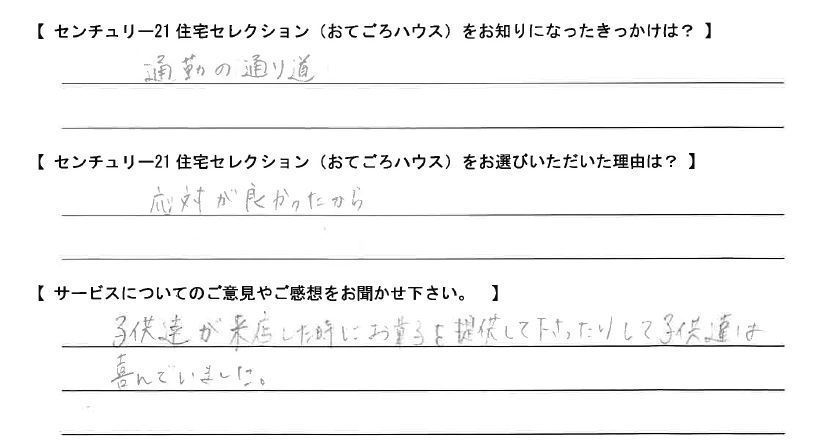 【 センチュリー21 住宅セレクション（おてごろハウス）をお知りになったきっかけは？ 】
通勤の通り道
【 センチュリー21 住宅セレクション（おてごろハウス）をお選びいただいた理由は？ 】
応対が良かったから
【 サービスについてのご意見やご感想をお聞かせ下さい。 】
子供達が来店した時にお菓子を提供して下さったりして子供達は
喜んでいました。